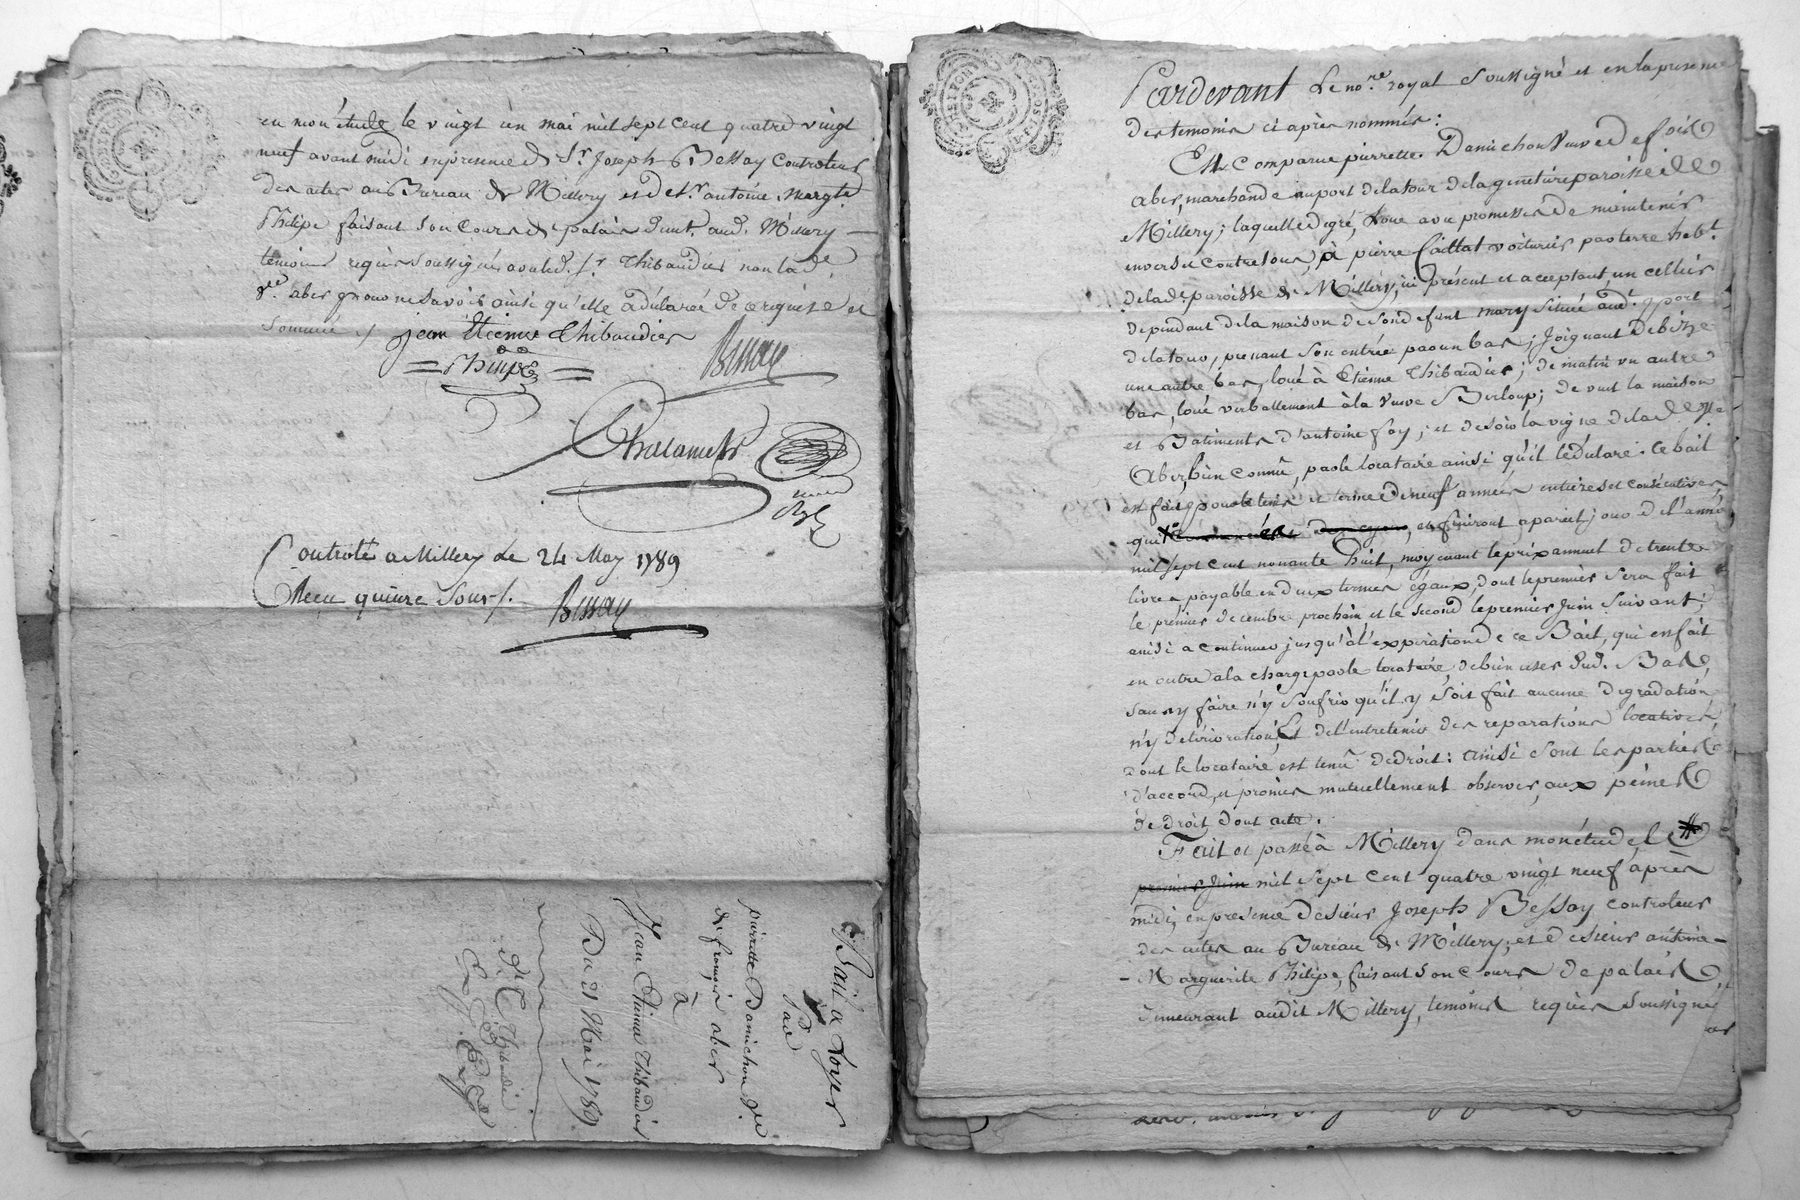 en mon étude le vingt un mai mil sept cent quatre vingt
neuf avant midi en presence de Sr. Joseph Bessay Controleur
des actes au Bureau de Millery et de sr. antoine Margte
Philipe faisant son Cours de palais demt. aud. Millery
temoins requis soussignés avec led. sr. Thibaudier non lad.
ve. aber pour ne savoir ainsi qu'elle a déclaré de ce requise et
sommée
jean Etienne Thibaudier
Philipe
Bessay
Controlé a Millery le 24 May 1789
Recu quinze sous
Bessay
Bail a Loyer
Par
pierrette Danichon ve.
de françois aber
à
Jean Etienne Thibaudier
Du 21 Mai 1789
Pardevant Le nore. royal Soussigné et en la presence
des temoins ci après nommés:
Est Comparue pierrette Danichon Veuve de fois.
aber, marchande au port de la tour de la paroisse de
Millery; laquelle de gré, Loue avec promesse de maintenir
envers et contre tous, à pierre Caillat voiturier par terre habt.
de lad. paroisse de Millery, ici présent et acceptant un cellier
dependant de la maison de son defunt mary située aud. port
de la tour, prenant son entrée par un bas; Joignant de bize
une autre bas, loué à Etienne Thibaudier; de matin un autre
bas, loué verballement à la Veuve Berloup; de vent la maison
et Batiments d'antoine foy; et de soir la vigne de lad. ve.
Aber, bien connu, par le locataire ainsi qu'il le déclare. Ce bail
est fait pour le tems et terme de neuf années entieres et consécutives
qui et finiront a pareil jour de l'année
mil sept cent nonante huit, moyenant le prix annuel de trente
livres payable en deux termes égaux dont le premier sera fait
le premier decembre prochain et le second le premier Juin suivant,
ainsi a continuer jusqu'à l'expiration de ce Bail, qui est fait
en outre a la charge par le locataire, de bien user dud. Bas,
sans y faire n'y soufrir qu'il y soit fait aucune degradation
n'y detérioration, Et de l'entretenir des reparations locatives
dont le locataire est tenu de droit: ainsi sont les parties
d'accord, et promis mutuellement observer, aux peines
de droit dont acte.
Fait et passé à Millery dans mon étude, le #
premier Juin mil sept cent quatre vingt neuf après
midi, en presence de sieur Joseph Bessay controleur
des actes au Bureau de Millery, et de sieur antoine
Marguerite Philipe, faisant son Cours de palais
demeurant audit Millery, temoins requis soussignés